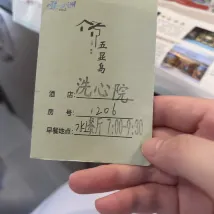 五显岛
酒 店: 洗心院
房 号: 1206
早餐地点: 水上餐厅 7:00-9:30